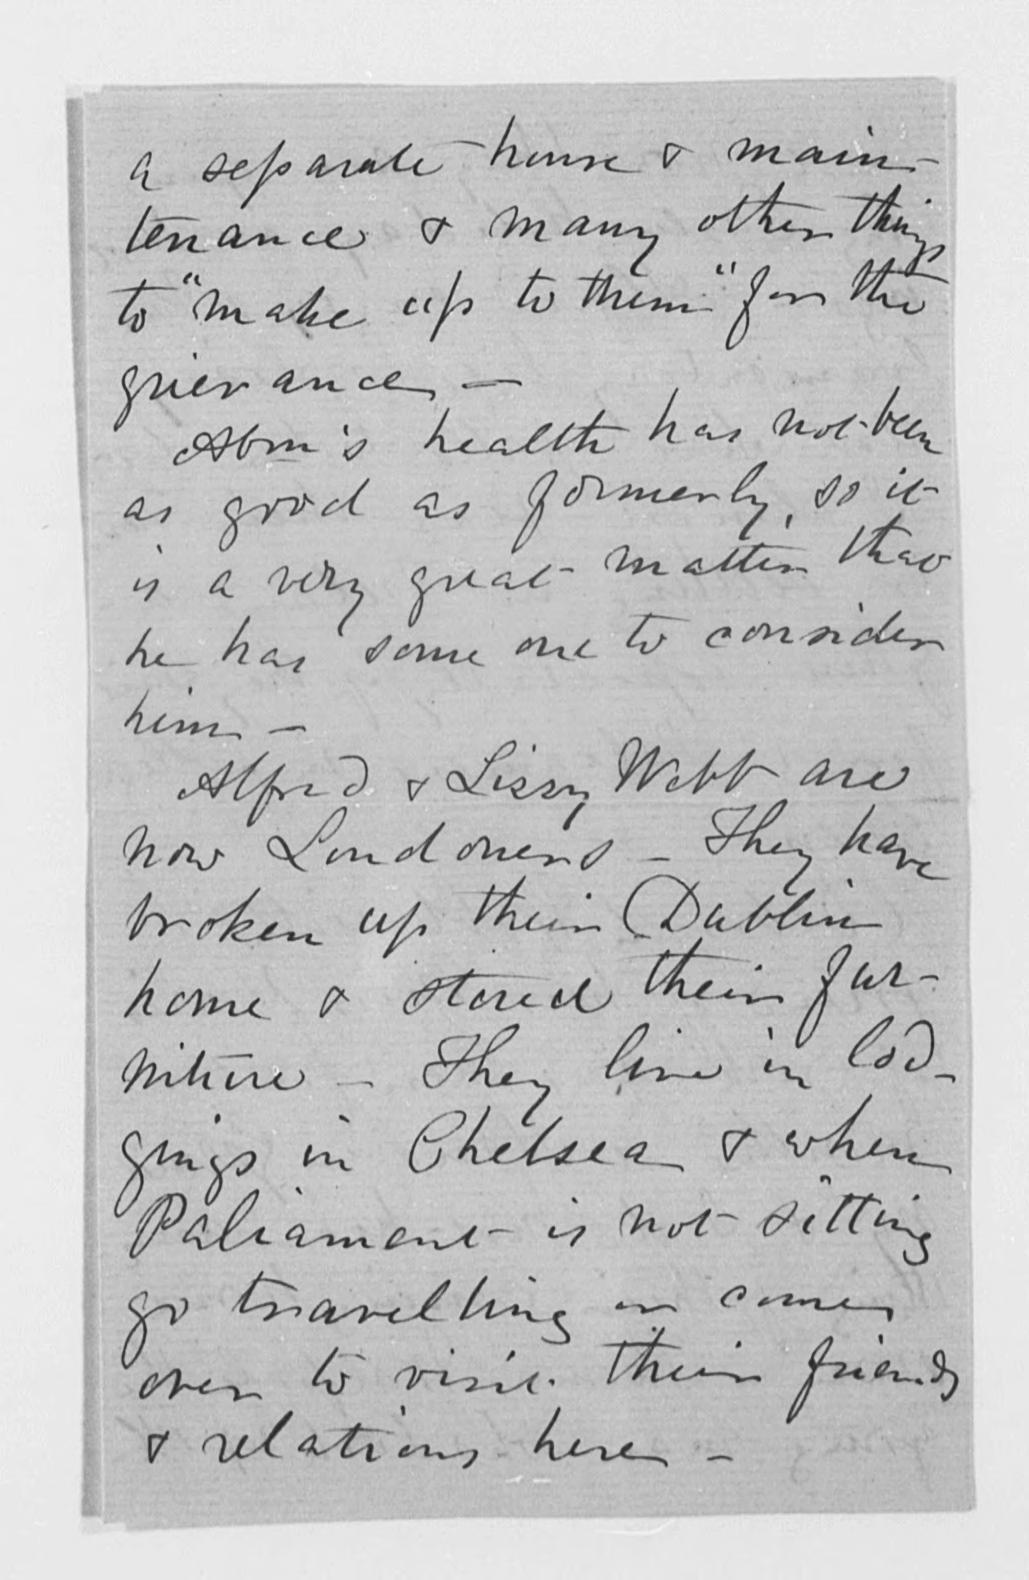 a separate house & main-
tenance & many other things
to "make up to them" for the
grievance —
Abm's health has not been
as good as formerly, so it
is a very great matter that
he has some one to consider
him —
Alfred & Lizzy Webb are
now Londoners — They have
broken up their Dublin
home & stored their fur-
niture — They live in lod-
gings in Chelsea & when
Paliament is not sitting
go travelling or come
over to visit their friends
& relations here —